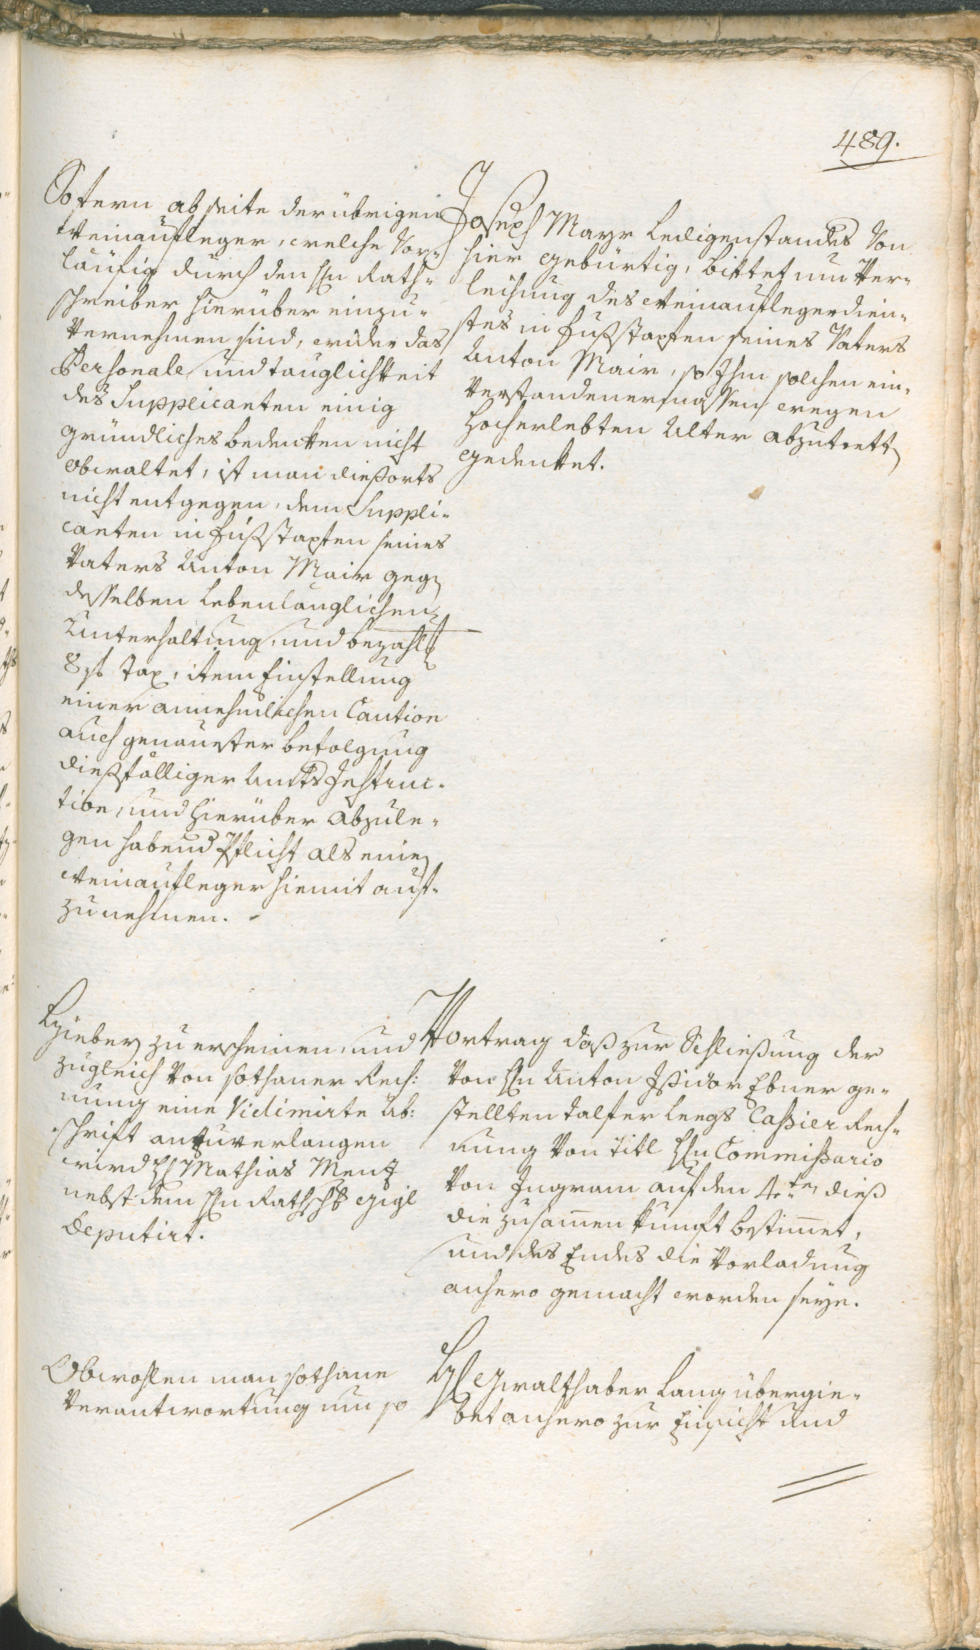 489.
Sofern abseite der übrigen
Weinaufleger, welche vor-
läufig durch den Hn Rath-
schreiber hierüber einzu-
vernehmen sind, wider das
Personale und tauglichkeit
des Supplicanten einig
gründliches bedenken nicht
obwaltet, ist man diesorts
nicht entgegen, dem Suppli-
canten in fußstapfen seines
Vaters Anton Mair geg
desselben lebenlänglichen
Unterhaltung, und bezahl
8 f Tax, item Einstellung
einer annehmlichen Caution
auch genauester befolgung
dießfälliger Amts Instruc-
tion, und hierüber abzule-
gen habend Pflicht als eine
Weinaufleger hiemit auf-
zunehmen.
Joseph Mayr ledigenstandes von
hier gebürtig, bittet um Ver-
leihung des Weinauflegerdien-
stes in fußstapfen seines Vaters
Anton Mair, so Ihm solchen ein-
verstandenermassen wegen
hocherlebten Alter abzutrett
gedenket.
Hieby zu erscheinen, und
zugleich von sothaner Rech:
nung eine Vidimirte Ab:
schrift anzuverlangen
wird H Mathias Menz
nebst dem Hn Rathschb Gigl
deputirt.
Vortrag daß zur Schließung der
von Hn Anton Isidor Ebner ge-
stellten Talfer leegs Cassier Rech-
nung von titl Hn Commissario
von Ingram auf den 4ten dieß
die zusamen kunft bestimet,
und des Endes die Vorladung
anhero gemacht worden seye.
Obwohlen man sothane
Verantwortung um so
H Gwalthaber Lang übergie-
bet anhero zur Einsicht und